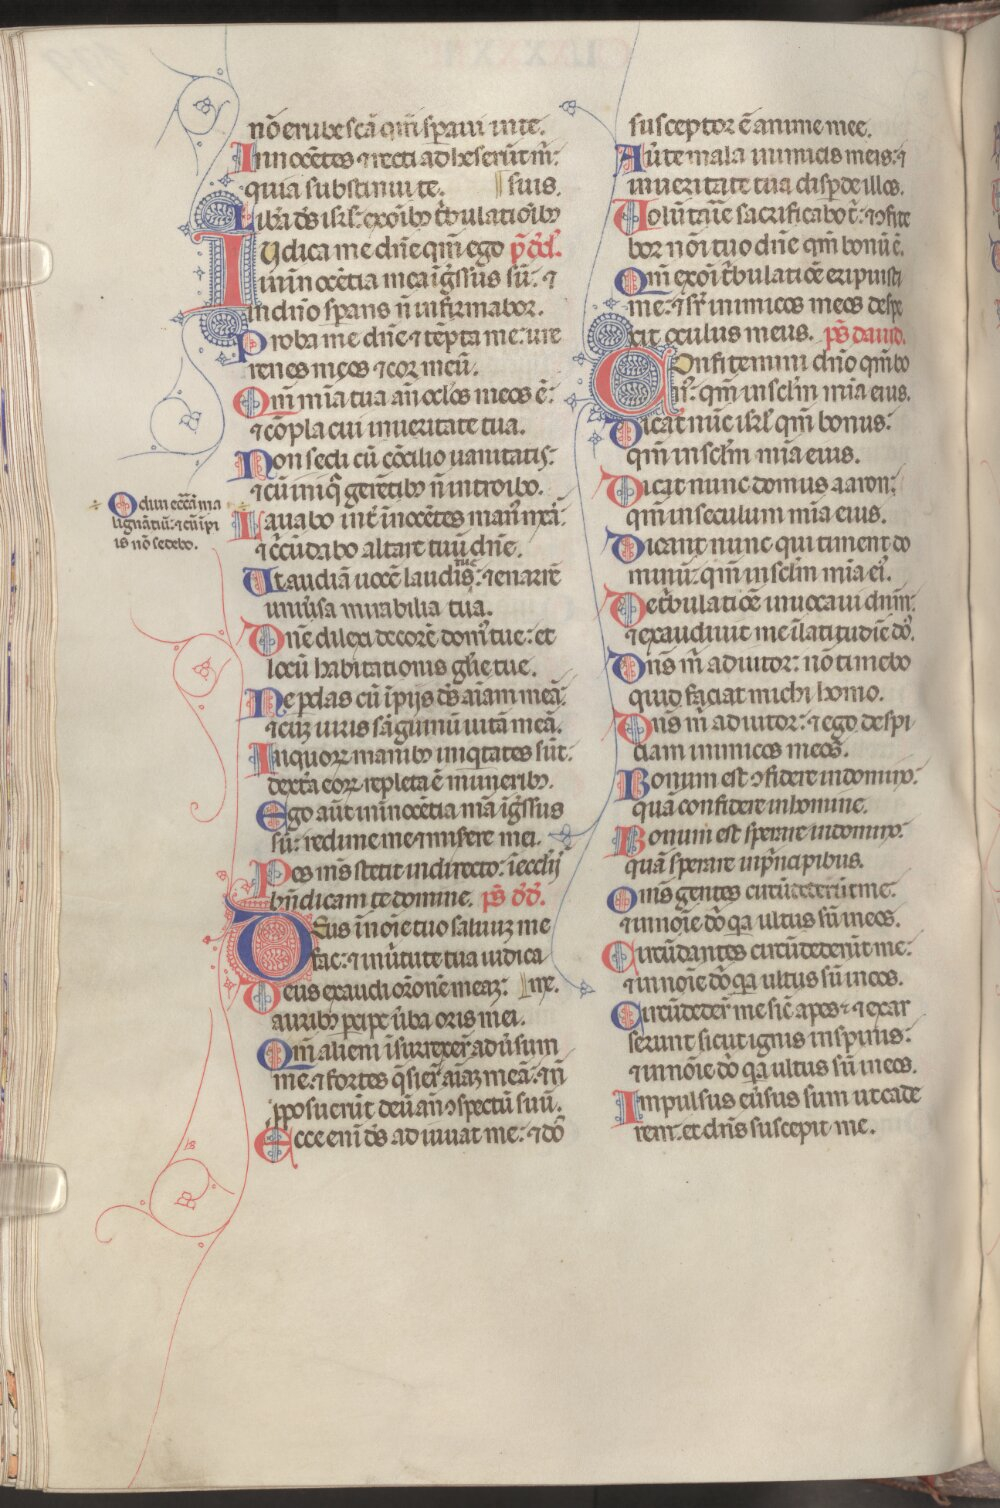 nō erubescā qm̄ speraui in te.
Innocētes ⁊ recti adheserūt m̄:
quia substinui te. suis.
Libera d̄s isrl̄: ex oīb; tribulatioīb;
Iudica me dn̄e qm̄ ego ps̄ dd̄.
in inocētia mea īgressus sū: ⁊
in dn̄o sperans n̄ infirmabor.
Proba me dn̄e ⁊ tēpta me: ure
renes meos ⁊ cor meū.
Qm̄ mīa tua an̄ oclōs meos ē:
⁊ cōplacui in ueritate tua.
Non sedi cū cōcilio uanitatis:
⁊ cū iniq̄ gerētib; n̄ introibo.
Odiui ecc̄am ma
lignātiū: ⁊ cū īpi
is nō sedebo.
Lauabo int̄ īnocētes man' meā:
⁊ c̄cūdabo altare tuū dn̄e.
Ut audiā uocē laudis tue: ⁊ enarrē
uniu'sa mirabilia tua.
Dn̄e dilexi decorē dom' tue: et
locū habitationis gl̄ie tue.
Ne perdas cū īpijs d̄s aīam meā:
⁊ cuz uiris sāguinū uitā meā.
In quoꝝ manib; iniq̄tates sūt:
dext̄a eoꝝ repleta ē munerib;.
Ego aūt in inocētia mā īgssus
sū: redime me ⁊ misere mei.
Pes m̄s stetit in directo: ī eccl̄ij
bn̄dicam te domine. ps̄ dd̄.
Deus ī noīe tuo saluuz me
fac: ⁊ in u'tute tua iudica
Deus exaudi or̄onē meaz: me.
aurib; percipe u'ba oris mei.
Qm̄ alieni īsurrexer̄ adu'sum
me: ⁊ fortes q̄sier̄ aīaz meā: ⁊ n̄
pposuerūt deū an̄ ꝯspectū suū.
Ecce eni d̄s adiuuat me: ⁊ dō
susceptor ē anime mee.
Au'te mala inimicis meis: ⁊
in ueritate tua disperde illos.
Uolūtarie sacrificabo t̄: ⁊ ꝯfite
bor nōi tuo dn̄e qm̄ bonū ē.
Qm̄ ex oī tribulatiōe eripuisti
me: ⁊ sr̄ inimicos meos despe
xit oculus meus. ps̄ dauid.
Confitemini dn̄o qm̄ bo
n': qm̄ in sclm̄ mīa eius.
Dicat nūc isrl̄ qm̄ bonus:
qm̄ in sclm̄ mīa eius.
Dicat nunc domus aaron:
qm̄ in seculum mīa eius.
Dicant nunc qui timent do
minū: qm̄ in sclm̄ mīa ei'.
De tribulatiōe inuocaui dnm̄:
⁊ exaudiuit me ī latitudīe dō'.
Dn̄s m̄ adiutor: nō timebo
quid faciat michi homo.
Dn̄s m̄ adiutor: ⁊ ego despi
ciam inimicos meos.
Bonum est ꝯfidere in domino:
quā confidere in homine.
Bonum est sperare in domino:
quā sperare in pncipibus.
Oms̄ gentes circūdederūt me:
⁊ in noīe dō' q̄a ultus sū in eos.
Circūdantes circūdederūt me:
⁊ in noīe dō' q̄a ultus sū in eos.
Circūdeder̄ me sic̄ apes: ⁊ exar
serunt sicut ignis in spinis:
⁊ in nōie dō' q̄a ultus sū in eos.
Impulsus eu'sus sum ut cade
rem: et dn̄s suscepit me.